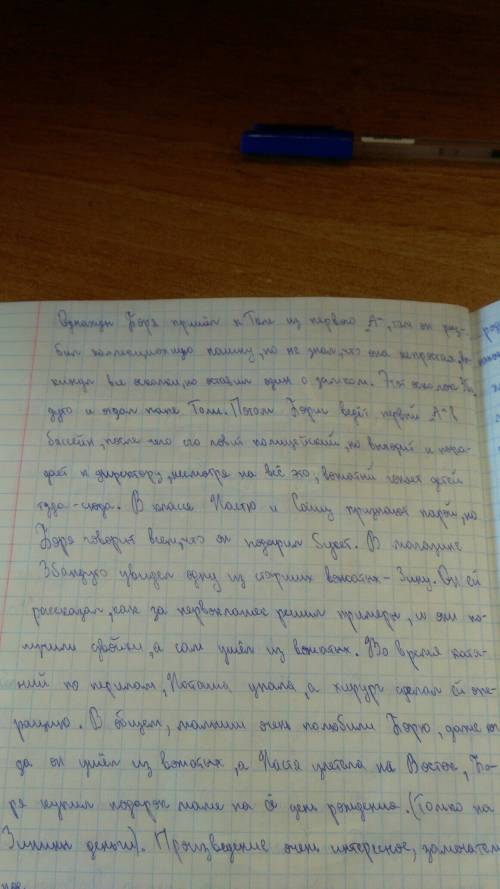 Однажды Боря пришёл к Толе из первого „А“, там он раз-
бил коллекционную машину, но не знал, что она непростая,
кинул все осколки, но оставил один с замком. Этот осколок
и отдал папе Толи. Потом Борис ведёт первый „А“ в
бассейн, после чего его ловит полицейский, но выходит и попа-
дает к директору, несмотря на всё это, вожатый гоняет детей
туда-сюда. В классе Настю и Сашу признают парой, но
Боря говорит всем, что он подарил букет. В магазине
Збандуто увидел одну из старших вожатых - Зину. Он ей
рассказал, как за первоклашек решил примеры, и они по-
лучили двойки, а сам ушёл из вожатых. Во время ката-
ний по перилам, Наташа упала, а хирург сделал ей опе-
рацию. В общем, малыши очень полюбили Борю, даже ког
да он ушёл из вожатых, а Настя улетела на Восток, Бо-
ря купил подарок маме на её день рождения. (Только на
Зинины деньги). Произведение очень интересное, замечатель
ное.